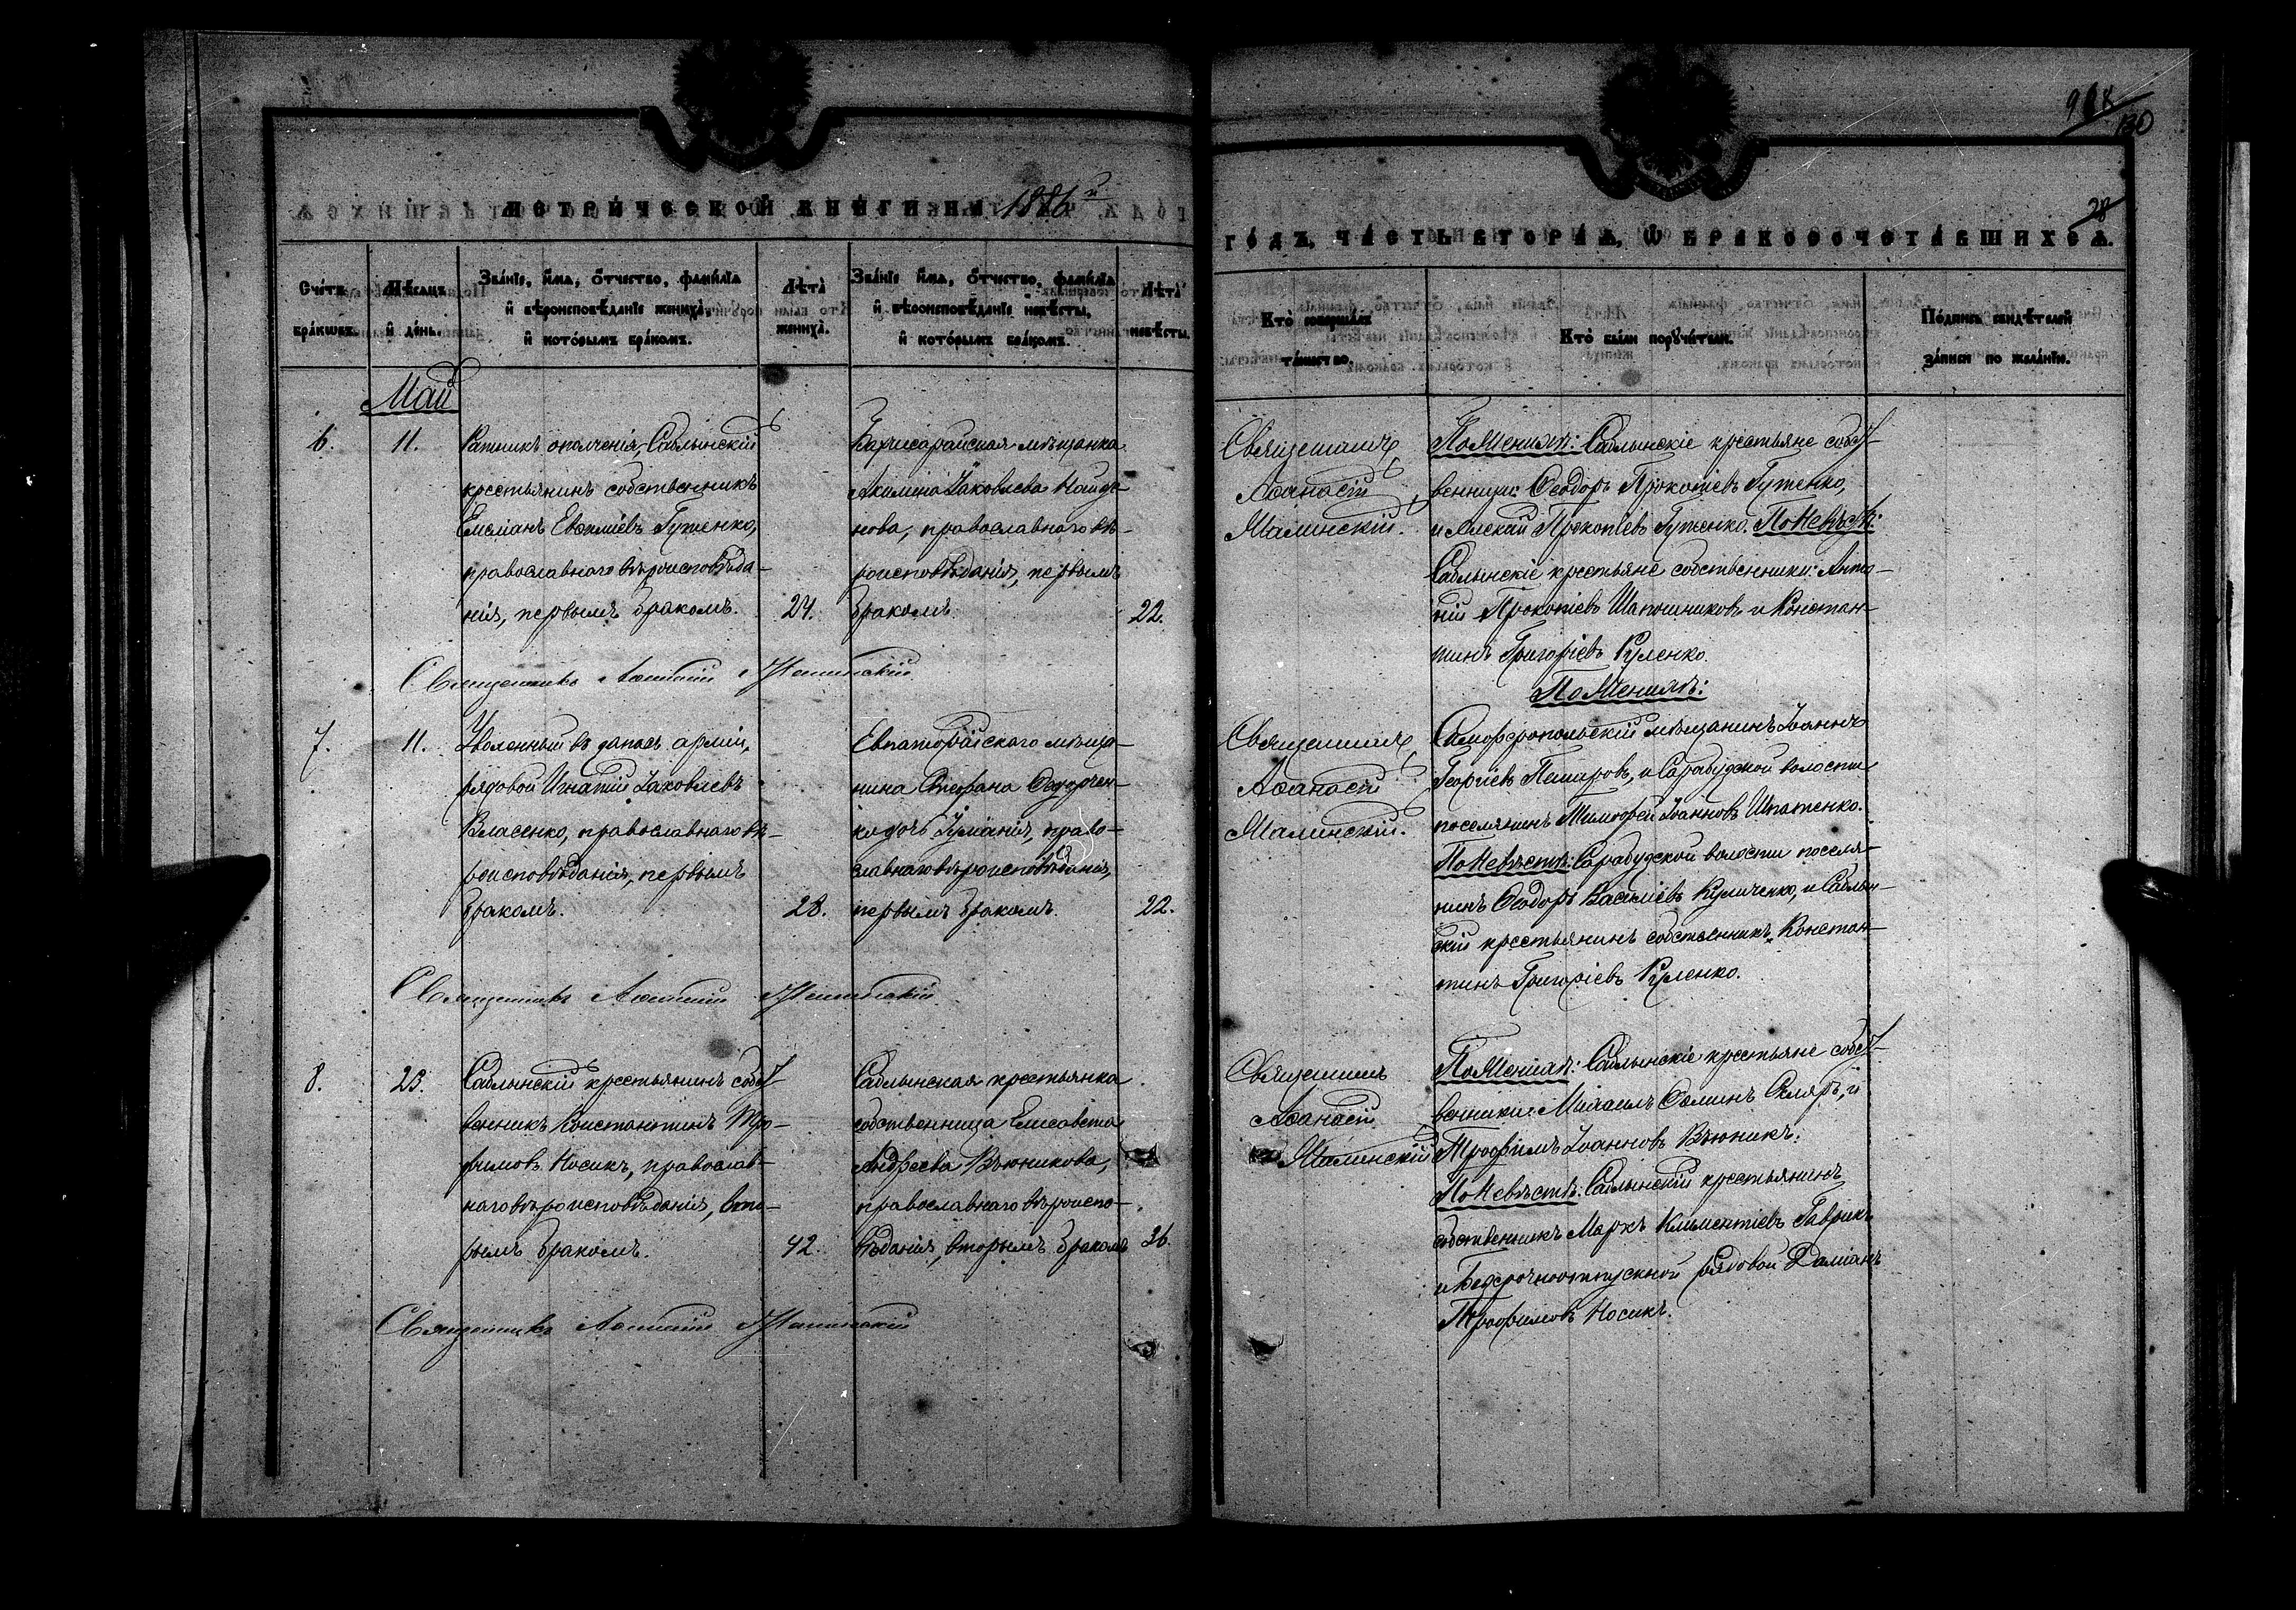 968
130
28
МЕТРИЧЕСКОЙ КНИГИ НА 1886й
ГОДЪ, ЧАСТЬ ВТОРАЯ, Ѡ БРАКОСОЧЕТАВШИХСЯ.
Счетъ браковъ.
Мѣсяцъ и день.
Званіе, имя, отчество, фамилія
и вѣроисповѣданіе жениха,
и которымъ бракомъ.
Лѣта жениха.
Званіе имя, отчество, фамилія
и вѣроисповѣданіе невѣсты,
и которымъ бракомъ.
Лѣта невѣсты.
Кто совершалъ
таинство.
Кто были поручители.
Подпись свидѣтелей
записи по желанію.
Май
6.
11.
Ратникъ ополченія, Саблынскій
крестьянинъ собственникъ
Емеліанъ Евѳиміевъ Гутенко,
православнаго вѣроисповѣда-
нія, первымъ бракомъ.
24.
Бахчисарайская мѣщанка
Акилина Іаковлева Найде-
нова, православнаго вѣ-
роисповѣданія, первымъ
бракомъ.
22.
Священникъ
Аѳанасій
Малинскій.
По Женихѣ: Саблынскіе крестьяне собст-
венники: Ѳеодоръ Прокопіевъ Гутенко,
и Алексѣй Прокопіевъ Гутенко. По Невѣстѣ:
Саблынскіе крестьяне собственники: Анто-
ній Прокопіевъ Шапошниковъ и Констан-
тинъ Григоріевъ Куленко.
Священникъ Аѳанасій Малинскій
7.
11.
Уволенный въ запасъ арміи,
рядовой Игнатій Іаковлевъ
Власенко, православнаго вѣ-
роисповѣданія, первымъ
бракомъ.
28.
Евпаторійскаго мѣща-
нина Стефана
дочь
православнаго вѣроисповѣданія,
первымъ бракомъ.
22.
Священникъ
Аѳанасій
Малинскій.
По Женихѣ:
Симферопольскій мѣщанинъ Іоаннъ
Георгіевъ и Сарабузской волости
поселянинъ Тимоѳей Іоанновъ Ипатенко.
По Невѣстѣ: Сарабузской волости поселя-
нинъ Ѳеодоръ Василіевъ Куличенко, и Саблын-
скій крестьянинъ собственникъ Констан-
тинъ Григоріевъ Куленко.
Священникъ Аѳанасій Малинскій
8.
23.
Саблынскій крестьянинъ собст-
венникъ Константинъ Тро-
фимовъ Носикъ, православ-
наго вѣроисповѣданія, вто-
рымъ бракомъ.
42.
Саблынская крестьянка
собственница Елисавета
Андреева Вьюникова,
православнаго вѣроиспо-
вѣданія, вторымъ бракомъ
36.
Священникъ
Аѳанасій
Малинскій
По Женихѣ: Саблынскіе крестьяне собст-
венники: Михаилъ Ѳоминъ Скляръ, и
Трофимъ Іоанновъ Вьюникъ.
По Невѣстѣ: Саблынскій крестьянинъ
собственникъ Маркъ Климентіевъ Гаврикъ
и безсрочноотпускной рядовой Даміанъ
Трофимовъ Носикъ.
Священникъ Аѳанасій Малинскій